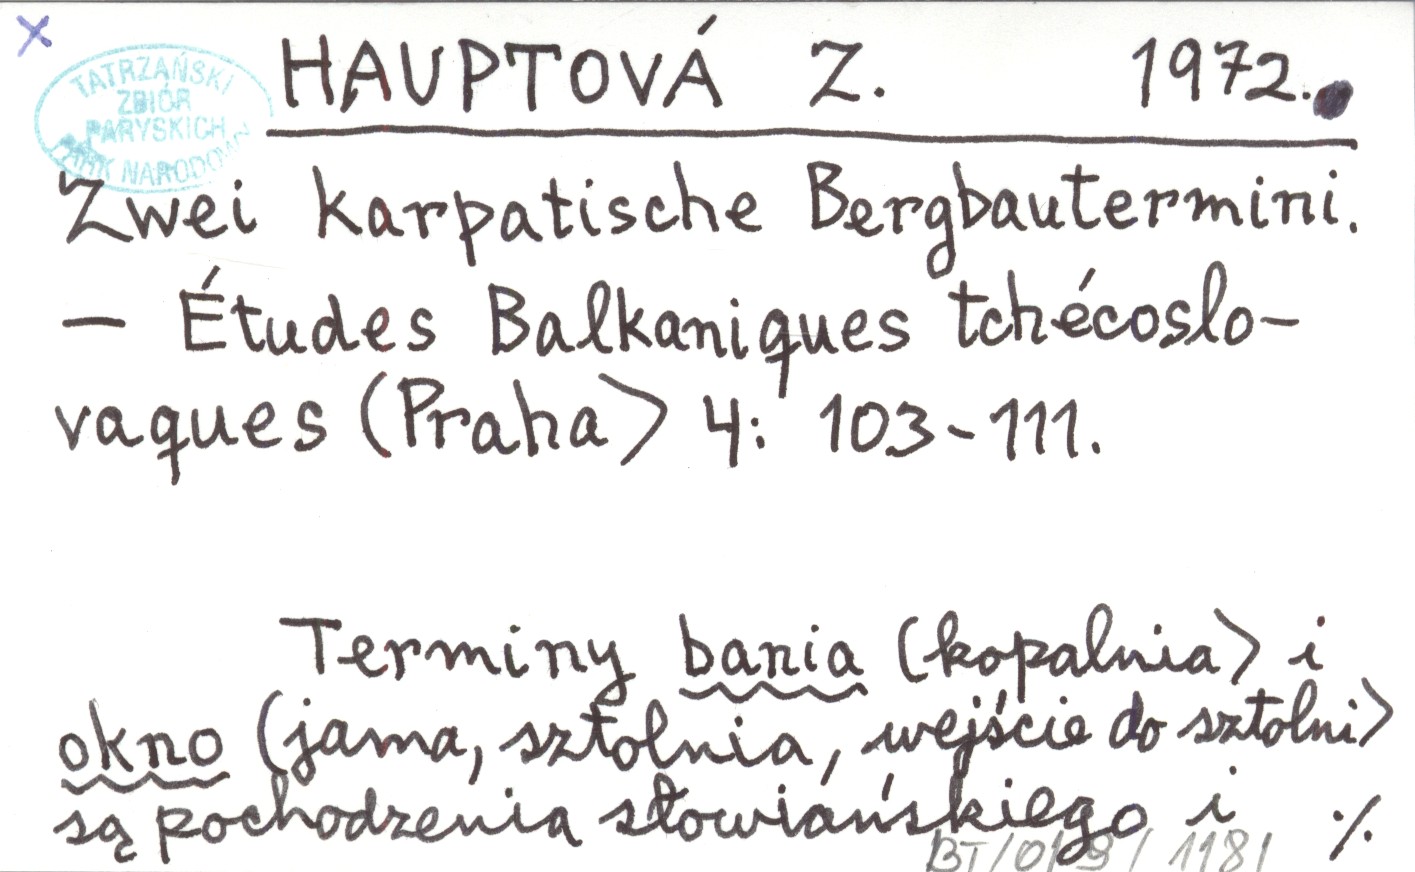 x
TATRZAŃSKI
ZBIÓR
PARYSKICH
PARK NARODOWY
HAUPTOVÁ Z. 1972.
Zwei karpatische Bergbautermini.
— Études Balkaniques tchécoslo-
vaques (Praha) 4: 103-111.
Terminy bania (kopalnia) i
okno (jama, sztolnia, wejście do sztolni)
są pochodzenia słowiańskiego i ./.
1181